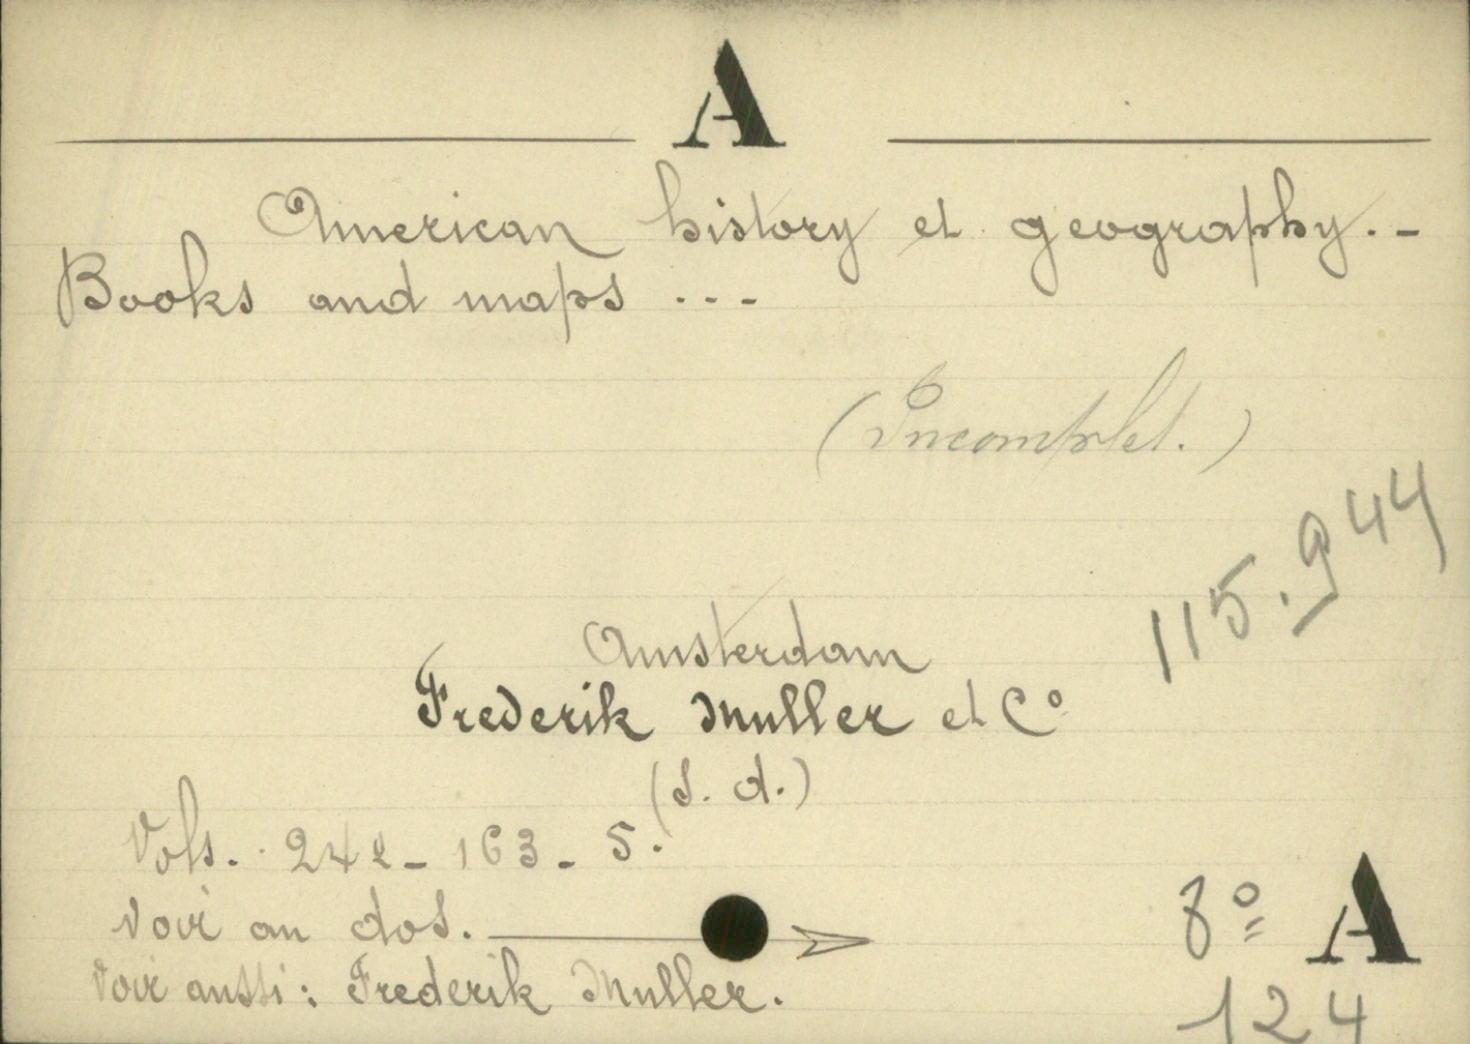 A
American history et geography. -
Books and maps ...
(Incomplet.)
115.944
Amsterdam
Frederik Muller et Cº
(s. d.)
Vols. 242 - 163 - 5.
Voir au dos.
Voir aussi: Frederik Muller.
8º A
124